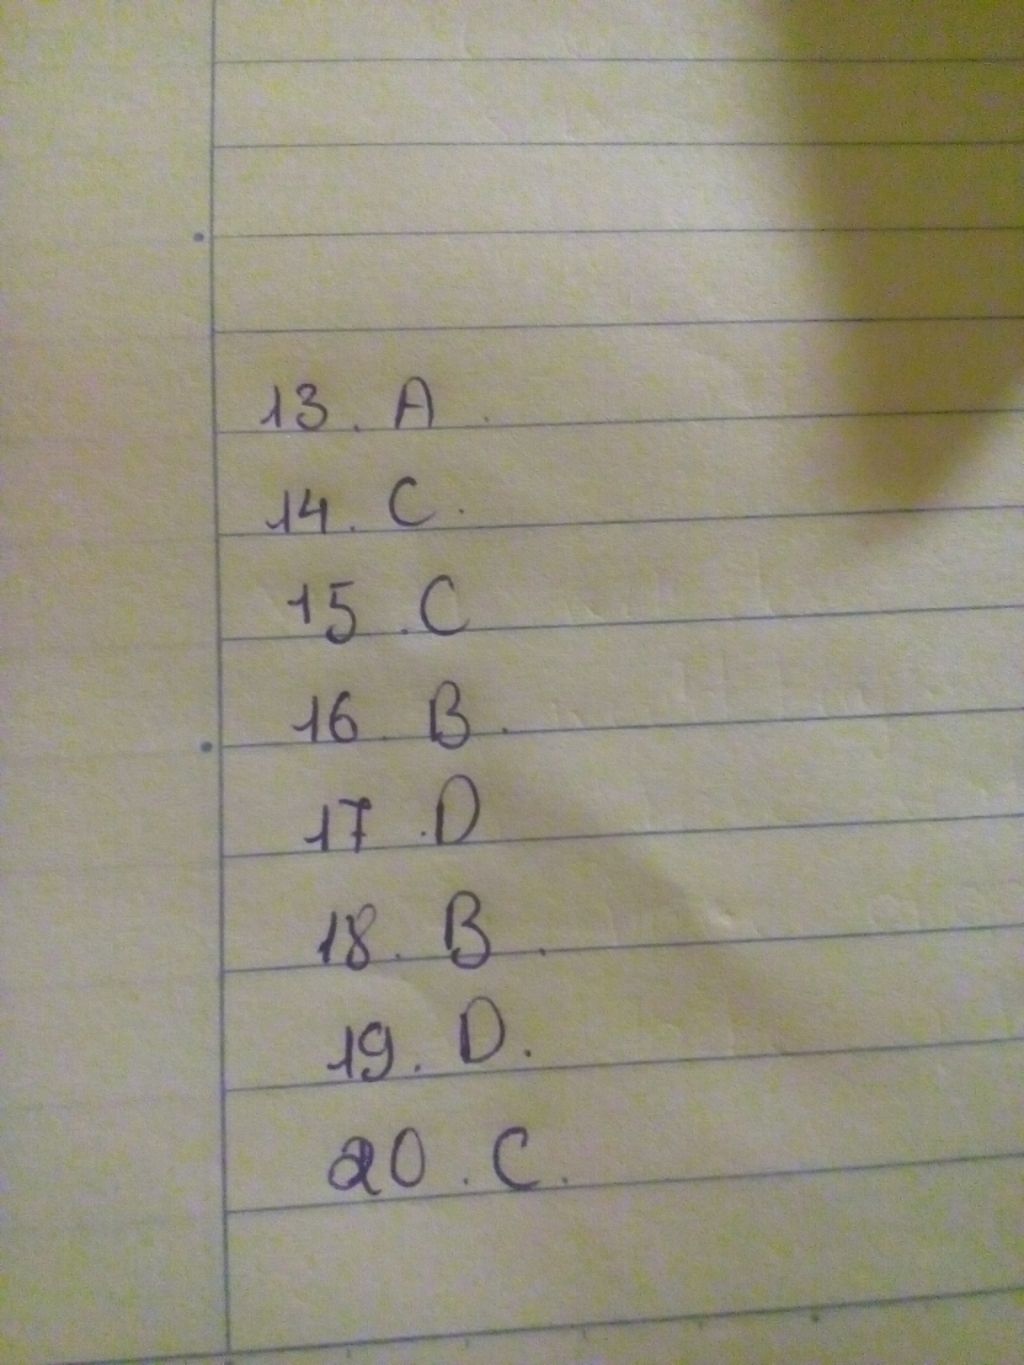 13. A.
14. C.
15. C
16. B.
17. D
18. B.
19. D.
20. C.